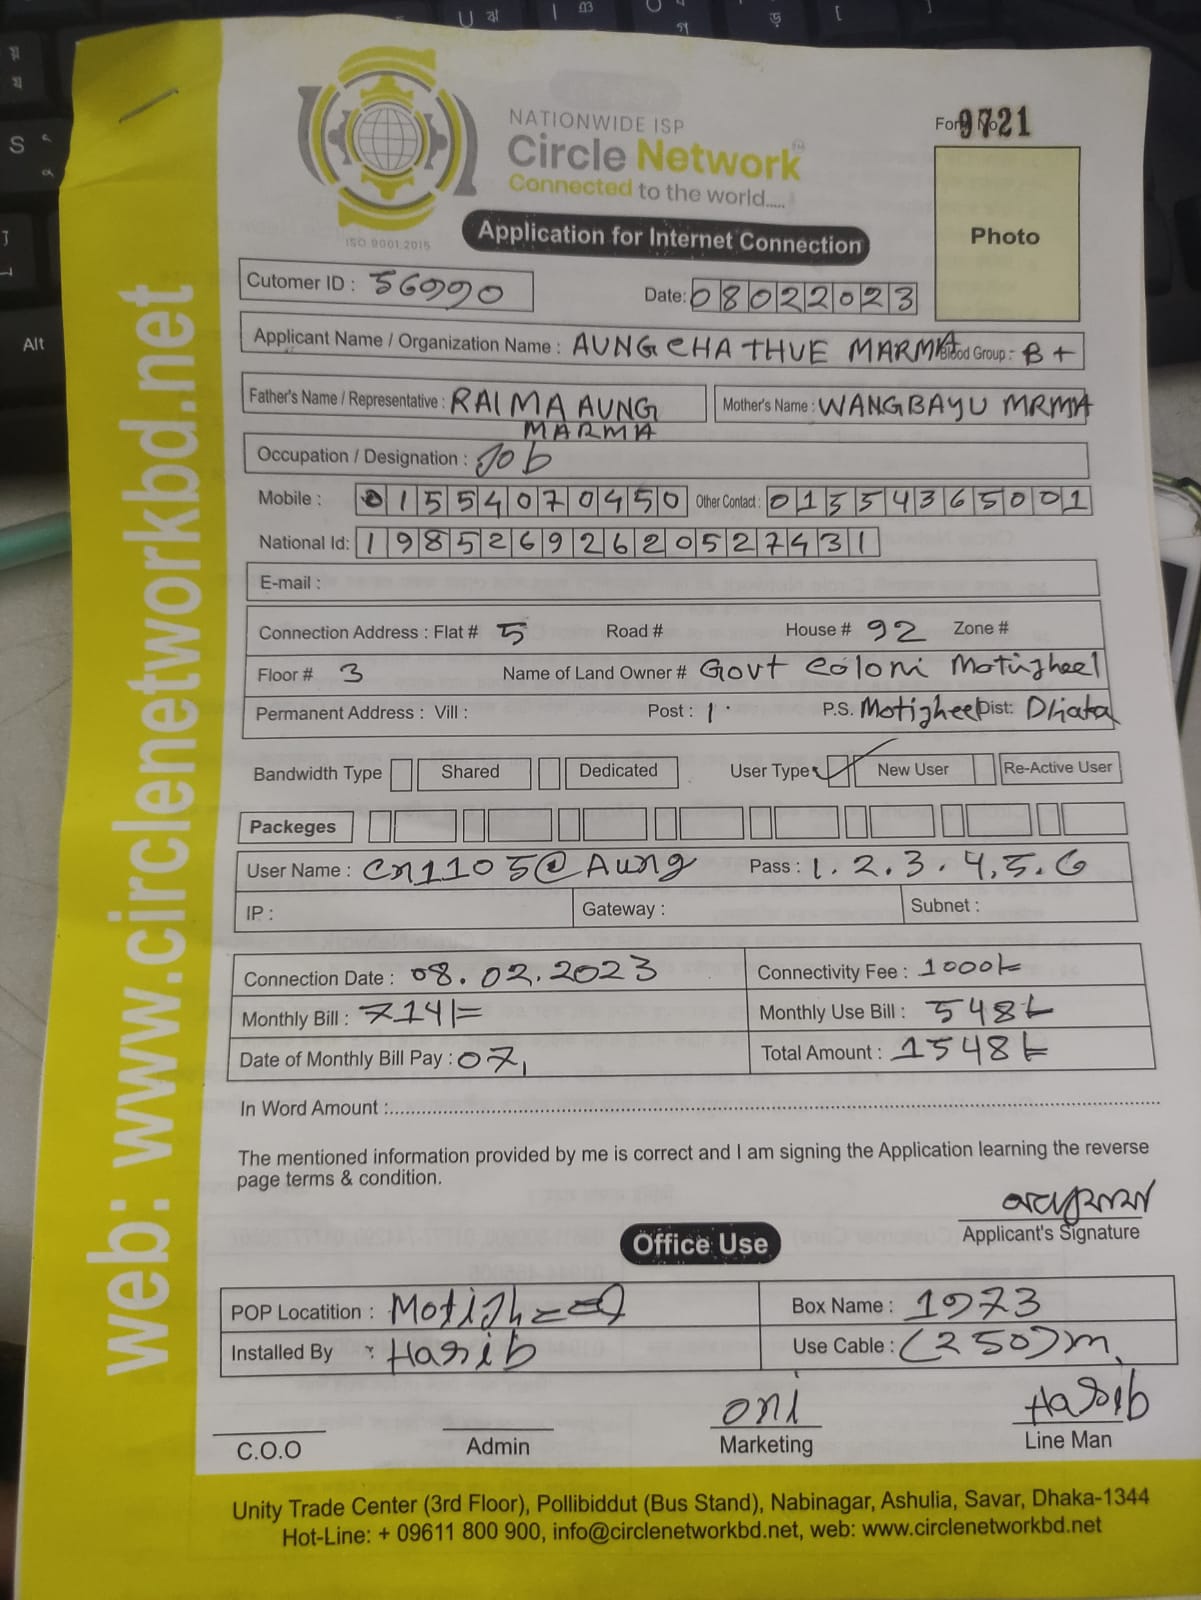 NATIONWIDE ISP
Circle Network
Connected to the world.....
ISO 9001:2015
Form No 9721
Photo
Application for Internet Connection
Cutomer ID : 56990
Date: 08022023
Applicant Name / Organization Name : AUNG CHA THUE MARMA Blood Group : B+
Father's Name / Representative : RAI MA AUNG MARMA
Mother's Name : WANGBAYU MRMA
Occupation / Designation : Job
Mobile : 01554070450 Other Contact : 01554365001
National Id: 19852692620527431
E-mail :
Connection Address : Flat # 5 Road # House # 92 Zone #
Floor # 3 Name of Land Owner # Govt coloni Motijheel
Permanent Address : Vill : Post : P.S. Motijheel Dist: Dhaka
Bandwidth Type Shared Dedicated User Type New User Re-Active User
Packeges
User Name : cn1105@Aung Pass : 1.2.3.4.5.6
IP : Gateway : Subnet :
Connection Date : 08.02.2023 Connectivity Fee : 1000/=
Monthly Bill : 714/= Monthly Use Bill : 548/=
Date of Monthly Bill Pay : 07 Total Amount : 1548/=
In Word Amount :
The mentioned information provided by me is correct and I am signing the Application learning the reverse
page terms & condition.
Applicant's Signature
Office Use
POP Locatition : Motijheel Box Name : 1973
Installed By : Hasib Use Cable : (250)m
oni Hasib
C.O.O Admin Marketing Line Man
Unity Trade Center (3rd Floor), Pollibiddut (Bus Stand), Nabinagar, Ashulia, Savar, Dhaka-1344
Hot-Line: + 09611 800 900, info@circlenetworkbd.net, web: www.circlenetworkbd.net
web: www.circlenetworkbd.net